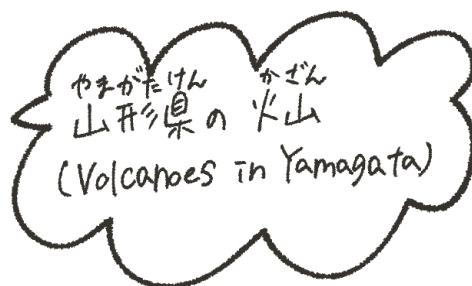 やまがたけん かざん
山形県の火山
(Volcanoes in Yamagata)